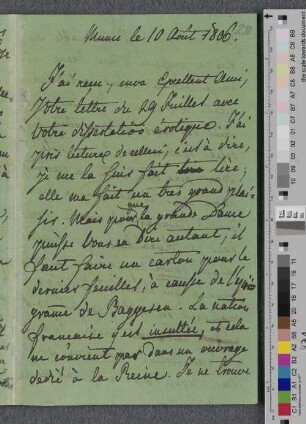 Munic le 10 Août 1806
J'ai reçu, mon Excellent Ami,
Votre lettre du 29 Juillet avec
Votre dissertation érotique. J'ai
pris lecture de celleci, c'est à dire,
je me la suis fait lire;
elle m'a fait un très grand plai-
sir. Mais pour que la grande Dame
puisse Vous en dire autant, il
faut faire un carton pour le
dernier feuillet, à cause de l'épi-
grame de Baggesen. La nation
francaise y est insultée, et cela
ne convient pas dans un ouvrage
dedié à la Reine. Je ne trouve